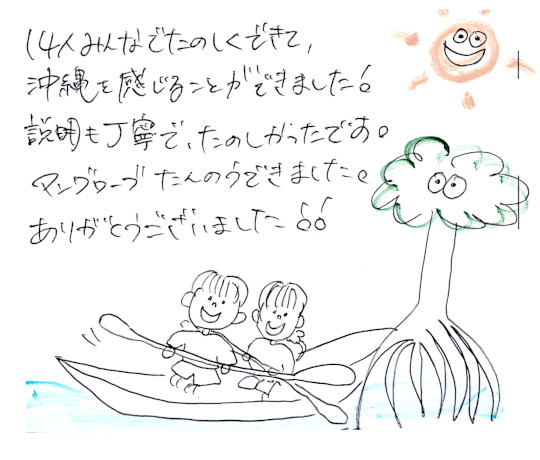 14人みんなでたのしくできて、
沖縄を感じることができました!
説明も丁寧で、たのしかったです。
マングローブ たんのうできました。
ありがとうございました!!